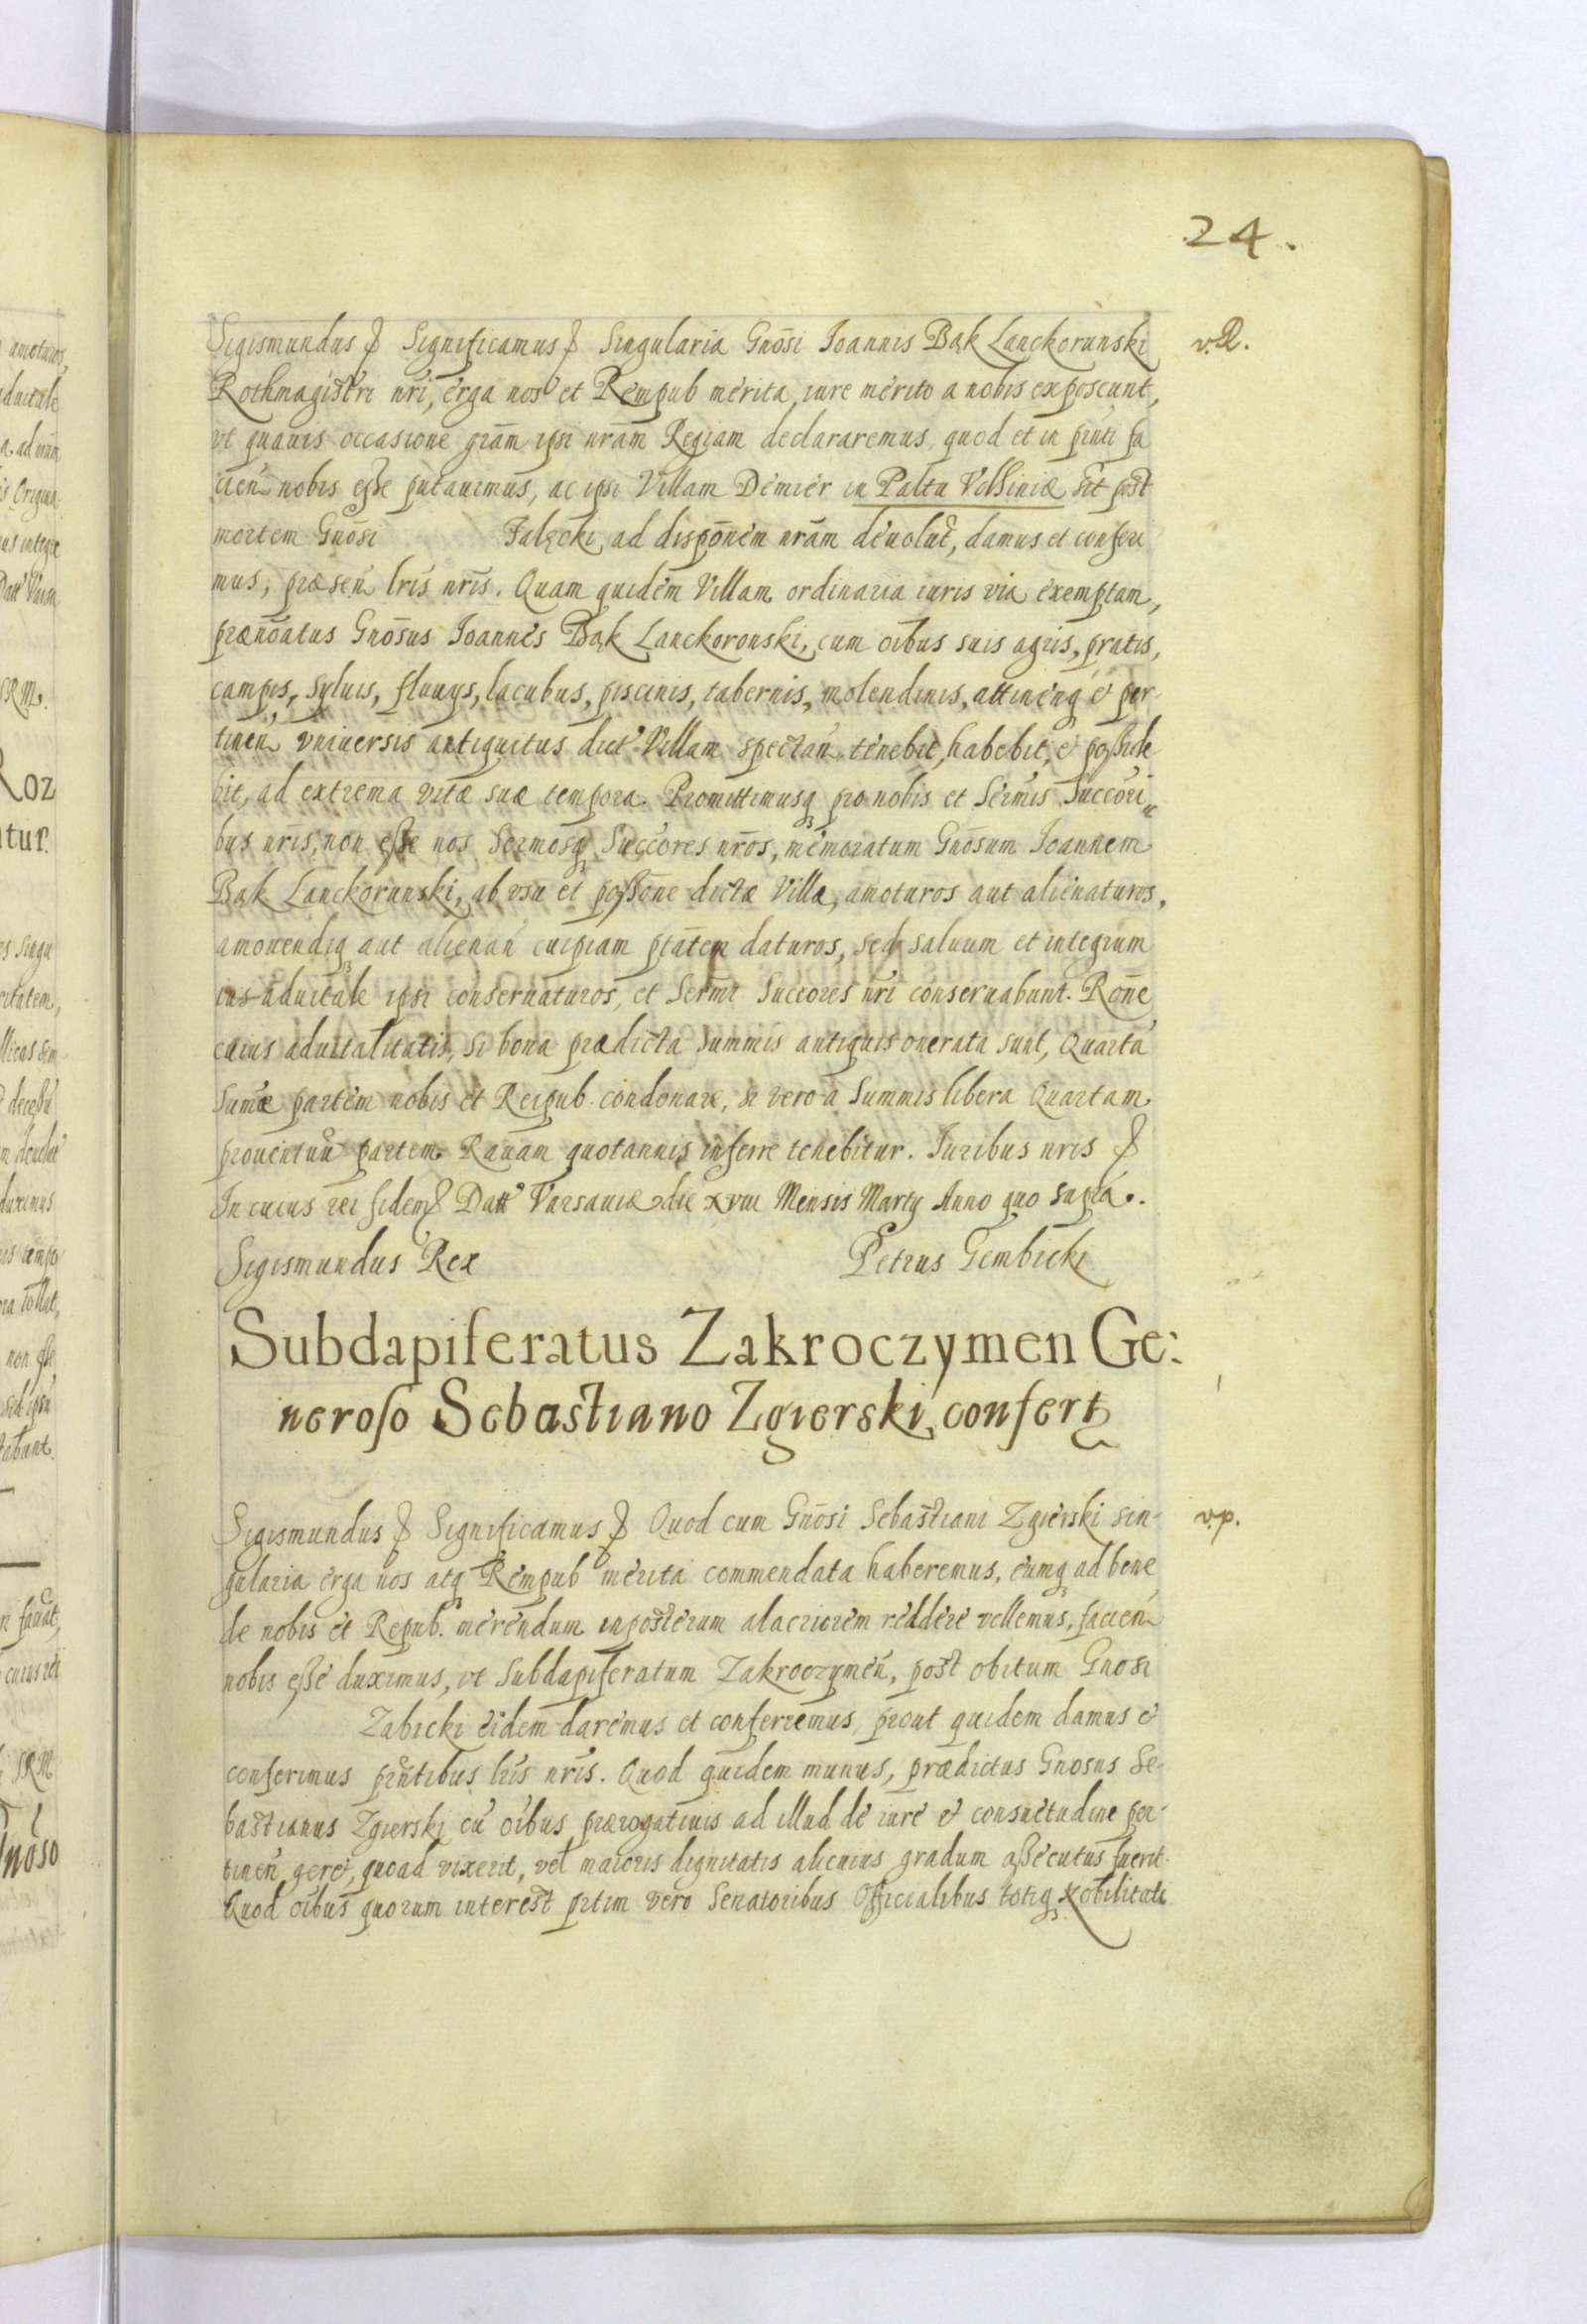 24.
Sigismundus Significamus Singularia Gnōsi Ioannis Bąk Lanckorunski v.R.
Rothmagistri nri, erga nos et Rempub merita, iure merito a nobis exposcunt,
vt quauis occasione grām ipsi nrām Regiam declararemus, quod et in pnti fa
cien nobis esse putauimus, ac ipsi Villam Demier in Paltu Volhiniæ sit post
mortem Gnōsi Falęcki, ad dispōnem nrām deuolut, damus et conferi
mus, præsen lris nris. Quam quidem Villam ordinaria iuris via exemptam,
prænōatus Gnōsus Ioannes Bąk Lanckoronski, cum oibus suis agris, pratis,
campis, syluis, fluuys, lacubus, piscinis, tabernis, molendinis, attineng & per
tinen vniuersis antiquitus dict Villam spectan tenebit, habebit, & posside
bit, ad extrema vitæ suæ tempora. Promittimusq pro nobis et Sermis Succori
bus nris, non esse nos Sermosq Succores nros, memoratum Gnōsum Ioannem
Bąk Lanckorunski, ab vsu et possōne dictæ Villæ, amoturos aut alienaturos,
amouendiq aut alienan cuipiam ptātem daturos, sed saluum et integrum
ius aduitale ipsi conseruaturos, et Sermi Succores nri conseruabunt. Rōne
cuius aduitalitatis, si bona prædicta summis antiquis onerata sunt, Quarta
Sumæ partem nobis et Reipub. condonare, si vero a Summis libera Quartam
prouentuu partem Rauam quotannis inferre tenebitur. Iuribus nris
In cuius rei fidem Datt Varsauiæ die xviii Mensis Marty Anno quo supra.
Sigismundus Rex Petrus Gembicki
Subdapiferatus Zakroczymen Ge:
neroso Sebastiano Zgierski confert
Sigismundus Significamus Quod cum Gnōsi Sebastiani Zgierski sin- v.p.
gularia erga nos atq Rempub merita commendata haberemus, eumq ad bene
de nobis et Repub. merendum inposterum alacriorem reddere vellemus, facien
nobis esse duximus, vt Subdapiferatum Zakroczymen, post obitum Gnosi
Zabicki eidem daremus et conferremus, prout quidem damus &
conferimus pntibus lris nris. Quod quidem munus, prædictus Gnosus Se-
bastianus Zgierski cu oibus prærogatiuis ad illud de iure & consuetudine per-
tinen geret, quoad vixerit, vel maioris dignitatis alicuius gradum assecutus fuerit.
Quod oibus quorum interest prtim vero Senatoribus Officialibus totiq Nobilitati